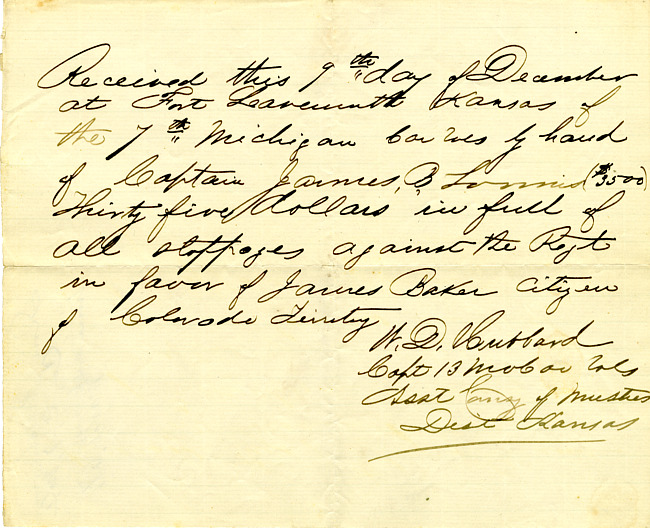 Received this 9th day of December
at Fort Leavenworth Kansas of
the 7th Michigan Cav Vols by hand
of Captain James B Loomis ($3500)
Thirty five dollars in full of
all stoppages against the Regt
in favor of James Baker Citizen
of Colorado Territory
W. D. Hubbard
Capt 13 Mo Cav Vols
Asst Comy of Musters
Dist Kansas